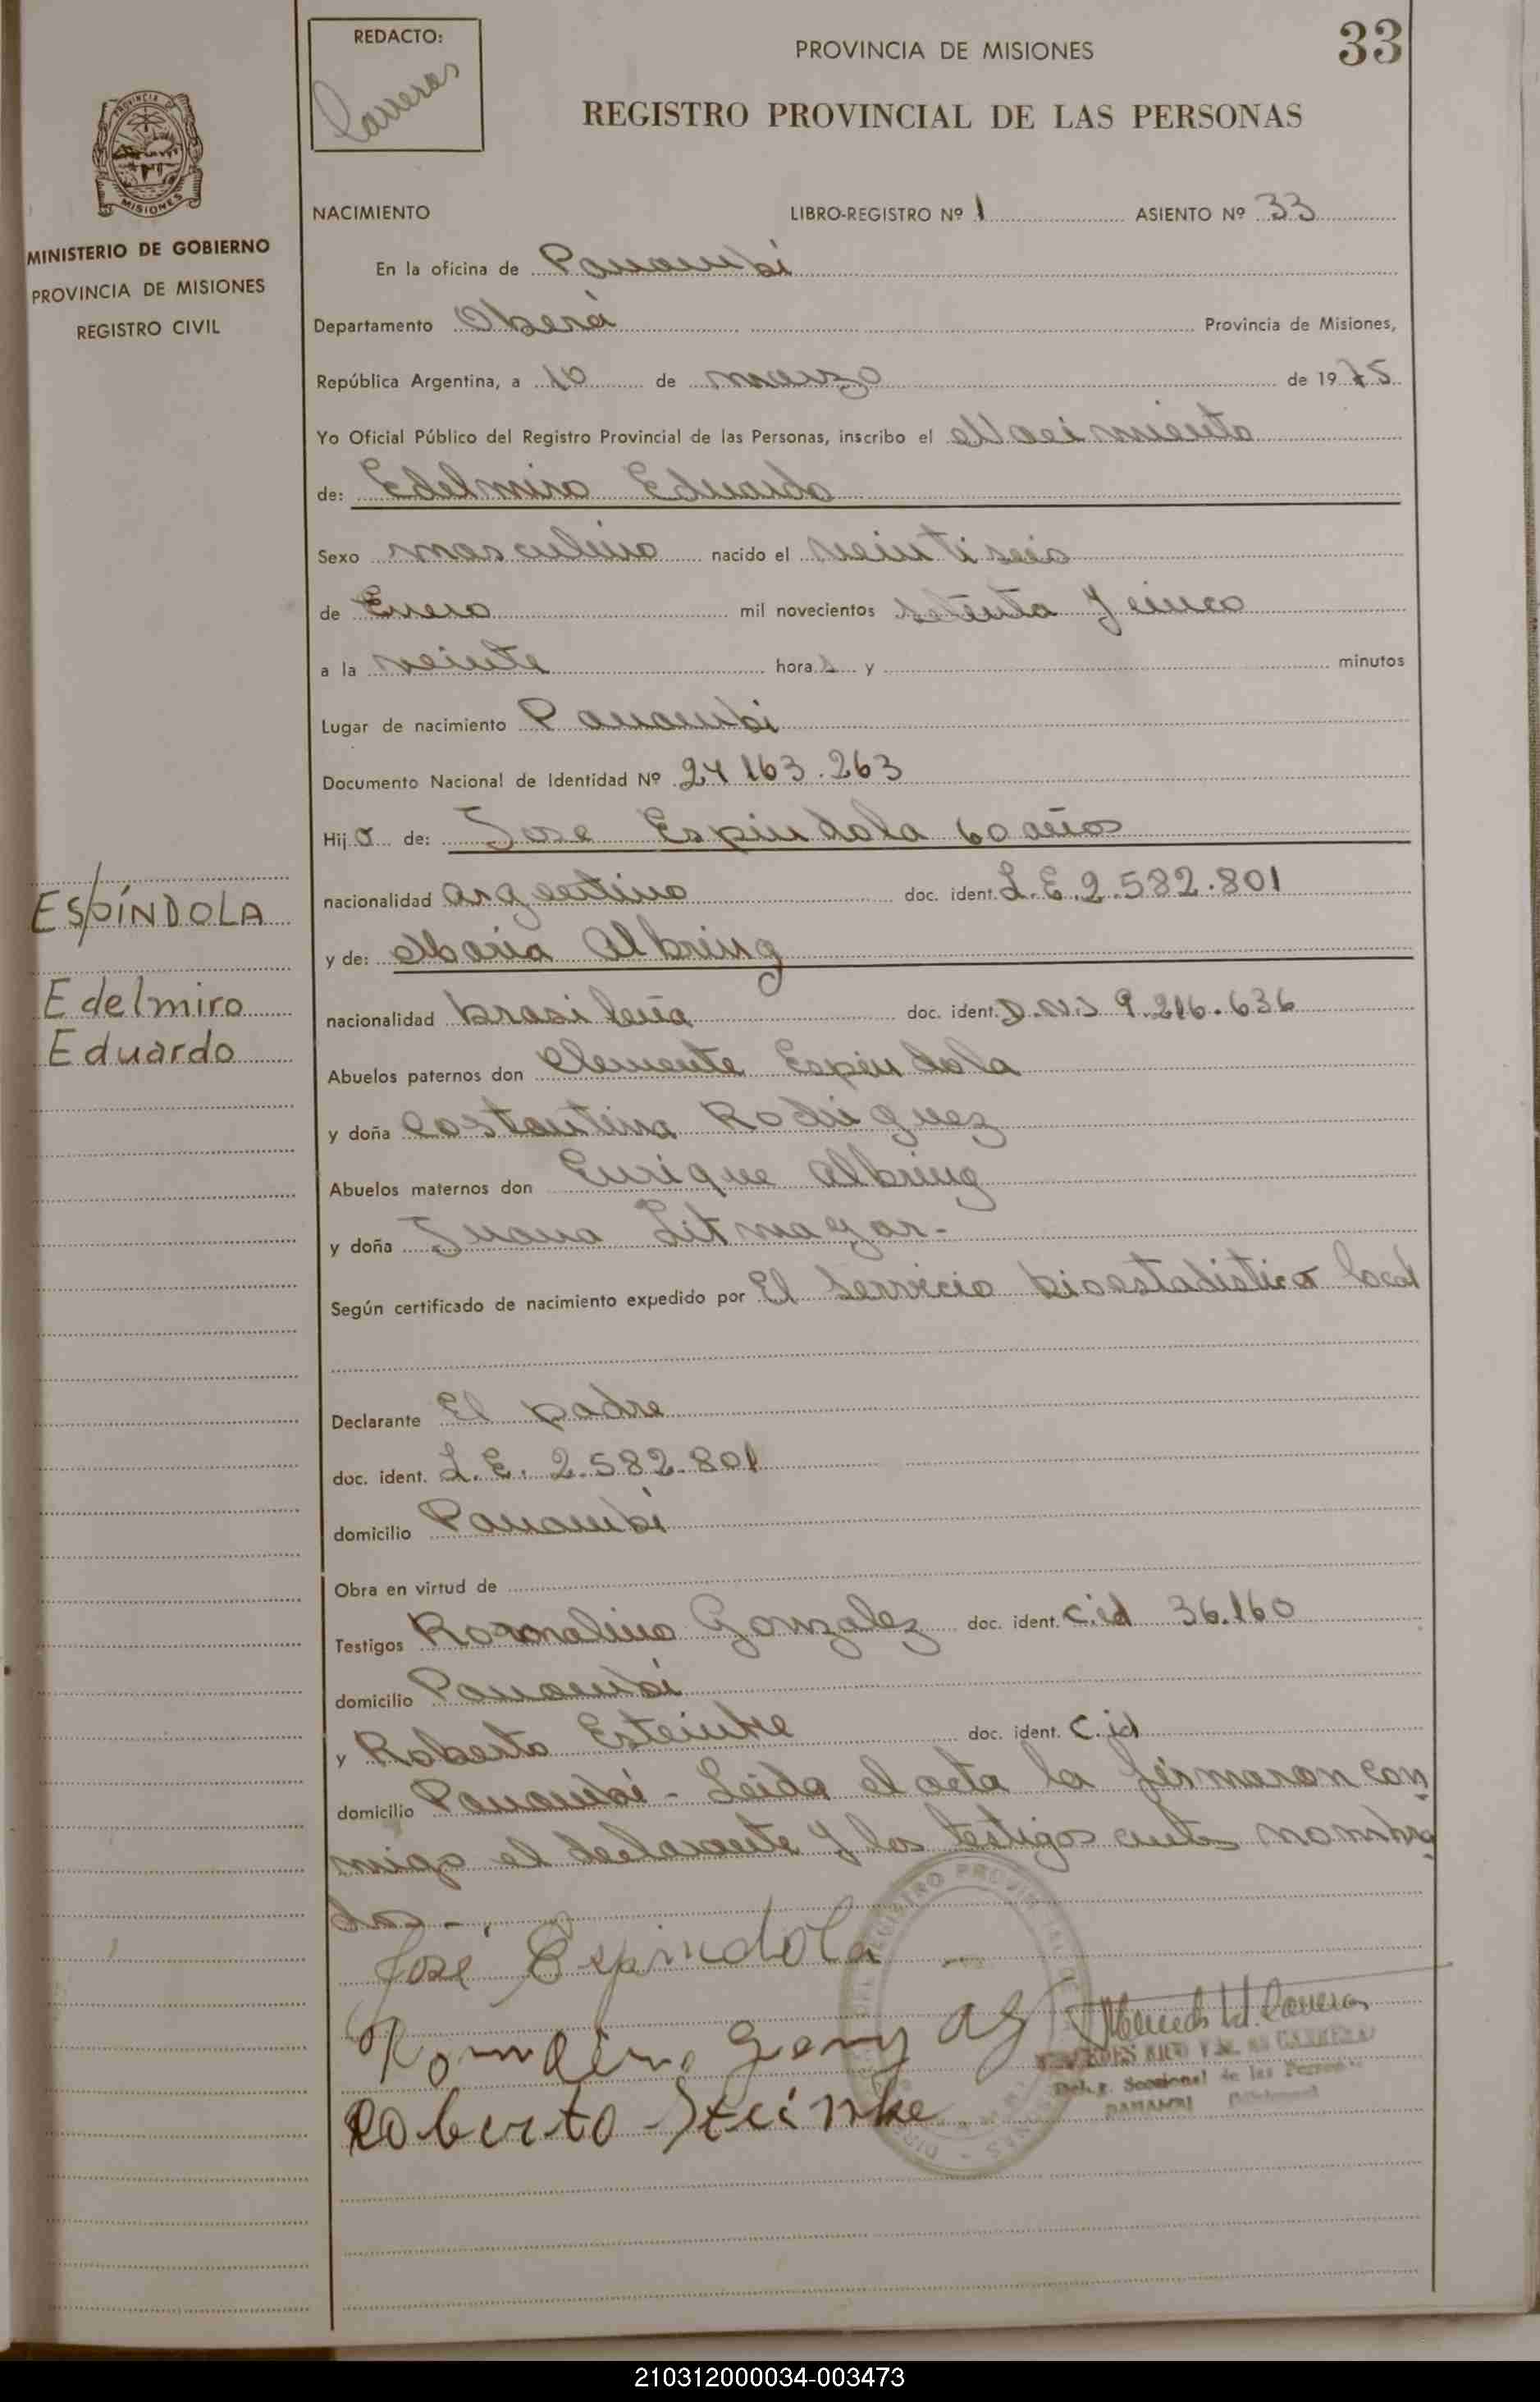 REDACTO:
Carreras
PROVINCIA DE MISIONES
33
REGISTRO PROVINCIAL DE LAS PERSONAS
PROVINCIA DE
MISIONES
MINISTERIO DE GOBIERNO
PROVINCIA DE MISIONES
REGISTRO CIVIL
NACIMIENTO LIBRO-REGISTRO Nº 1 ASIENTO Nº 33
En la oficina de Panambi
Departamento Oberá Provincia de Misiones,
República Argentina, a 10 de marzo de 1975
Yo Oficial Público del Registro Provincial de las Personas, inscribo el Nacimiento
de: Edelmiro Eduardo
Sexo masculino nacido el veintiseis
de Enero mil novecientos setenta y cinco
a la veinte horas y minutos
Lugar de nacimiento Panambi
Documento Nacional de Identidad Nº 24 163.263
Hijo de: Jose Espindola 60 años
nacionalidad argentino doc. ident. L.E. 2.582.801
y de: Maria Albring
nacionalidad brasileña doc. ident. D.N.I 9.216.636
Abuelos paternos don Clemente Espindola
y doña Costantina Rodriguez
Abuelos maternos don Enrique Albring
y doña Juana Litmayar-
Según certificado de nacimiento expedido por El Servicio bioestadistica local
Declarante El padre
doc. ident. L.E. 2.582.801
domicilio Panambi
Obra en virtud de
Testigos Gonzalez doc. ident. c.id 36.160
domicilio Panambi
y Roberto Esteinke doc. ident. c.id
domicilio Panambi - Leida el acta la firmaron con
migo el declarante y los testigos antes nombra
dos -.
ESPÍNDOLA
Edelmiro
Eduardo
José Espindola
Roberto Steinke
Carreras
Seccional de las
PANAMBI
210312000034-003473